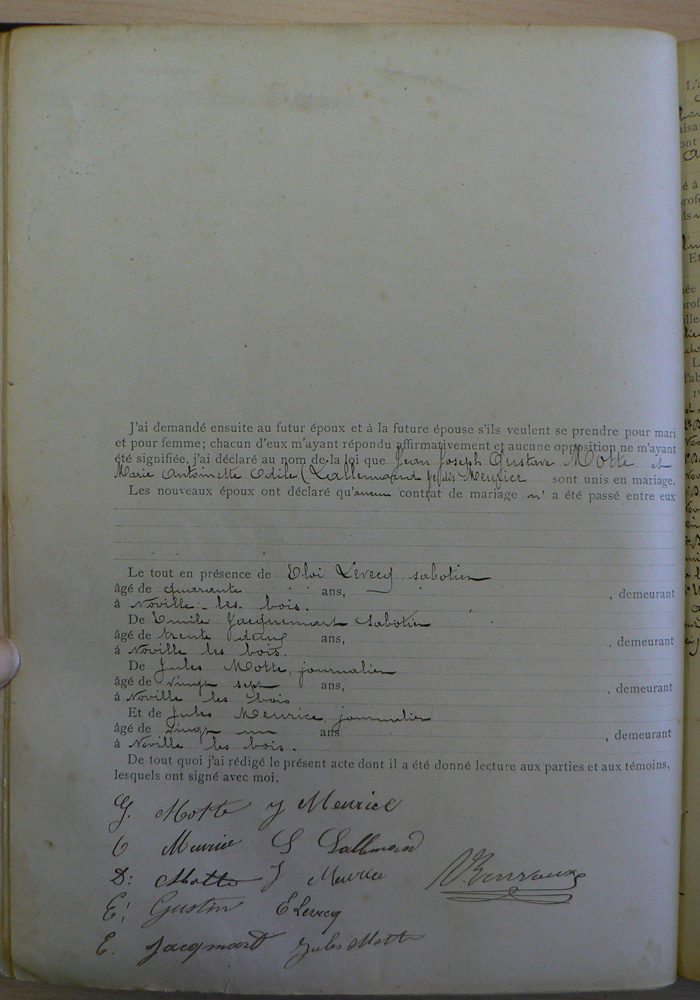 J'ai demandé ensuite au futur époux et à la future épouse s'ils veulent se prendre pour mari
et pour femme; chacun d'eux m'ayant répondu affirmativement et aucune opposition ne m'ayant
été signifiée, j'ai déclaré au nom de la loi que Jean Joseph Gustave Motte et
Marie Antoinette Odile Lallemand Meurice sont unis en mariage.
Les nouveaux époux ont déclaré qu'aucun contrat de mariage n'a été passé entre eux
Le tout en présence de Eloi Levecq, sabotier
âgé de quarante ans, , demeurant
à Noville-les-bois.
De Emile Jacquemart sabotier
âgé de trente ans, , demeurant
à Noville les bois.
De Jules Motte, journalier
âgé de vingt sept ans, , demeurant
à Noville les bois
Et de Jules Meurice, journalier
âgé de vingt un ans , demeurant
à Noville les bois.
De tout quoi j'ai rédigé le présent acte dont il a été donné lecture aux parties et aux témoins,
lesquels ont signé avec moi.
G. Motte J Meurice
O Meurice Lallemand
D: Motte J Meurice
E: Gustin E Levecq
E. Jacqmart Jules Motte
L'a